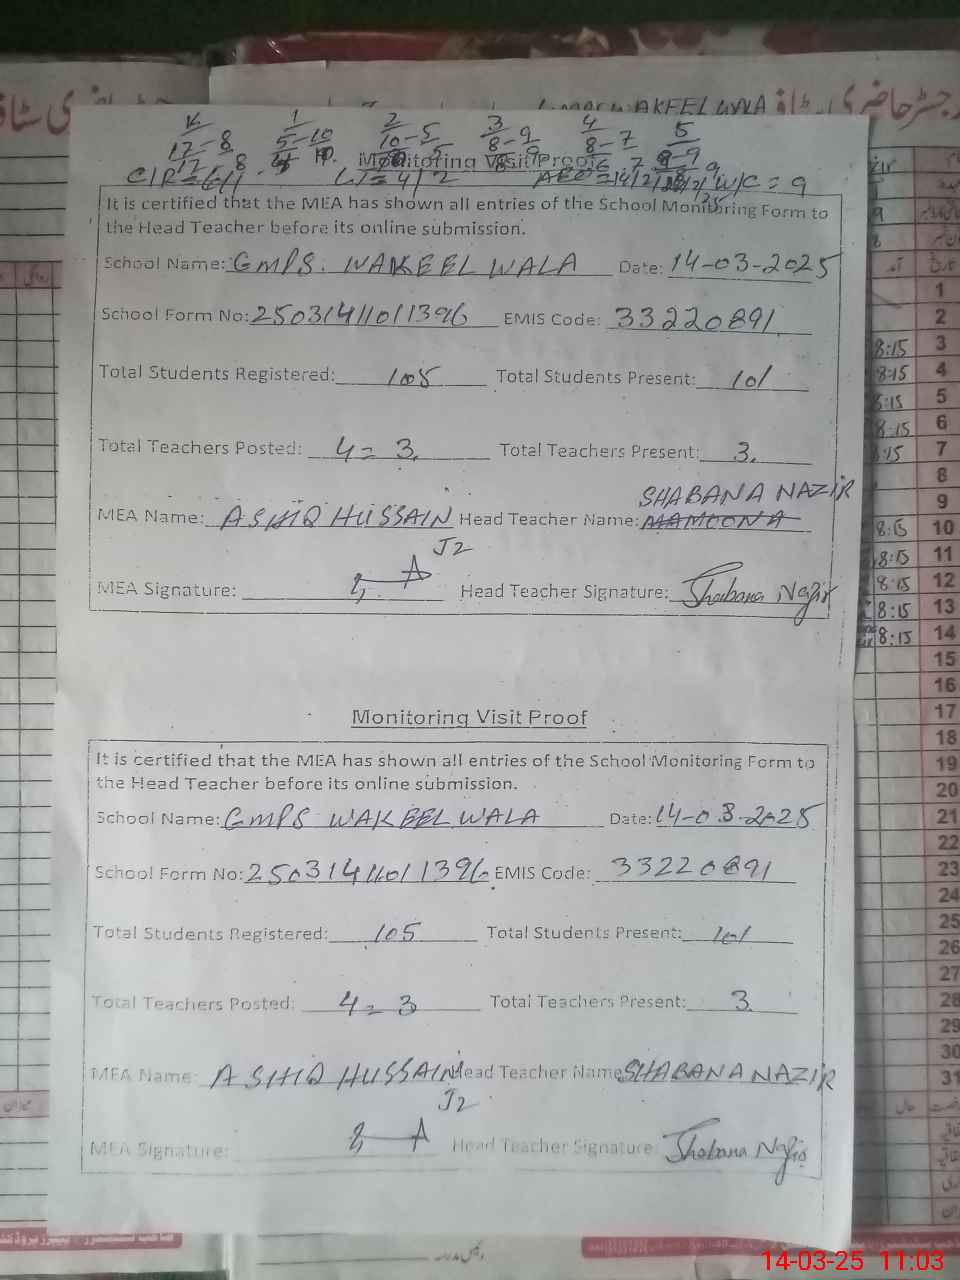 رجسٹر حاضری سٹاف
WAKEEL WALA
K 1 2 3 4 5
17-8 5-10 10-5 8-9 8-7 9-9
Monitoring Visit Proof
C/R=6/1 W/C = 9
It is certified that the MEA has shown all entries of the School Monitoring Form to
the Head Teacher before its online submission.
School Name: GMPS. WAKEEL WALA Date: 14-03-2025
School Form No: 25031411011396 EMIS Code: 33220891
Total Students Registered: 105 Total Students Present: 101
Total Teachers Posted: 4 = 3. Total Teachers Present: 3.
SHABANA NAZIR
MEA Name: ASHIQ HUSSAIN Head Teacher Name: MAMOONA
J2
MEA Signature: Head Teacher Signature: Shabana Nazir
Monitoring Visit Proof
It is certified that the MEA has shown all entries of the School Monitoring Form to
the Head Teacher before its online submission.
School Name: GMPS WAKEEL WALA Date: 14-03-2025
School Form No: 25031411011396 EMIS Code: 33220891
Total Students Registered: 105 Total Students Present: 101
Total Teachers Posted: 4 = 3 Total Teachers Present: 3.
MEA Name: ASHIQ HUSSAIN Head Teacher Name SHABANA NAZIR
J2
MEA Signature: Head Teacher Signature: Shabana Nazir
تاریخ آمد
1
2
8:15 3
8:15 4
8:15 5
8:15 6
8:15 7
8
9
8:15 10
8:15 11
8:15 12
8:15 13
8:15 14
15
16
17
18
19
20
21
22
23
24
25
26
27
28
29
30
31
میزان
14-03-25 11:03